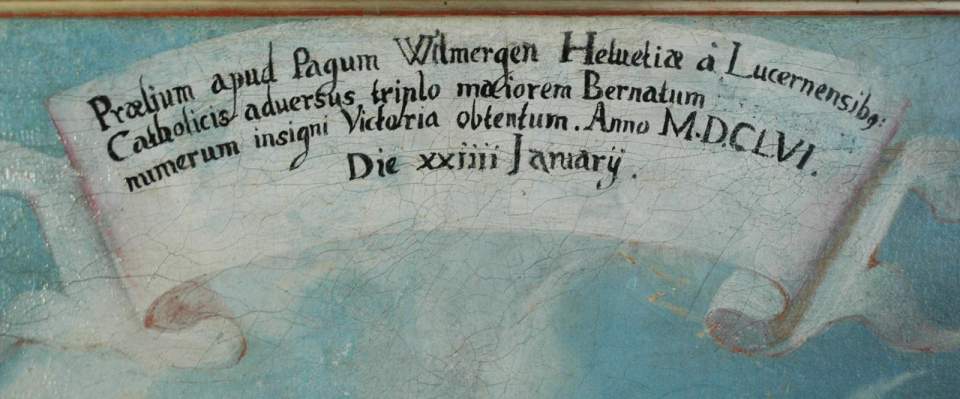 Prælium apud Pagum Wilmergen Heluetiæ â Lucernensibq:
Catholicis aduersus triplo maiorem Bernatum
numerum insigni Victoria obtentum. Anno M.D.CLVI.
Die xxiiii Januarÿ.